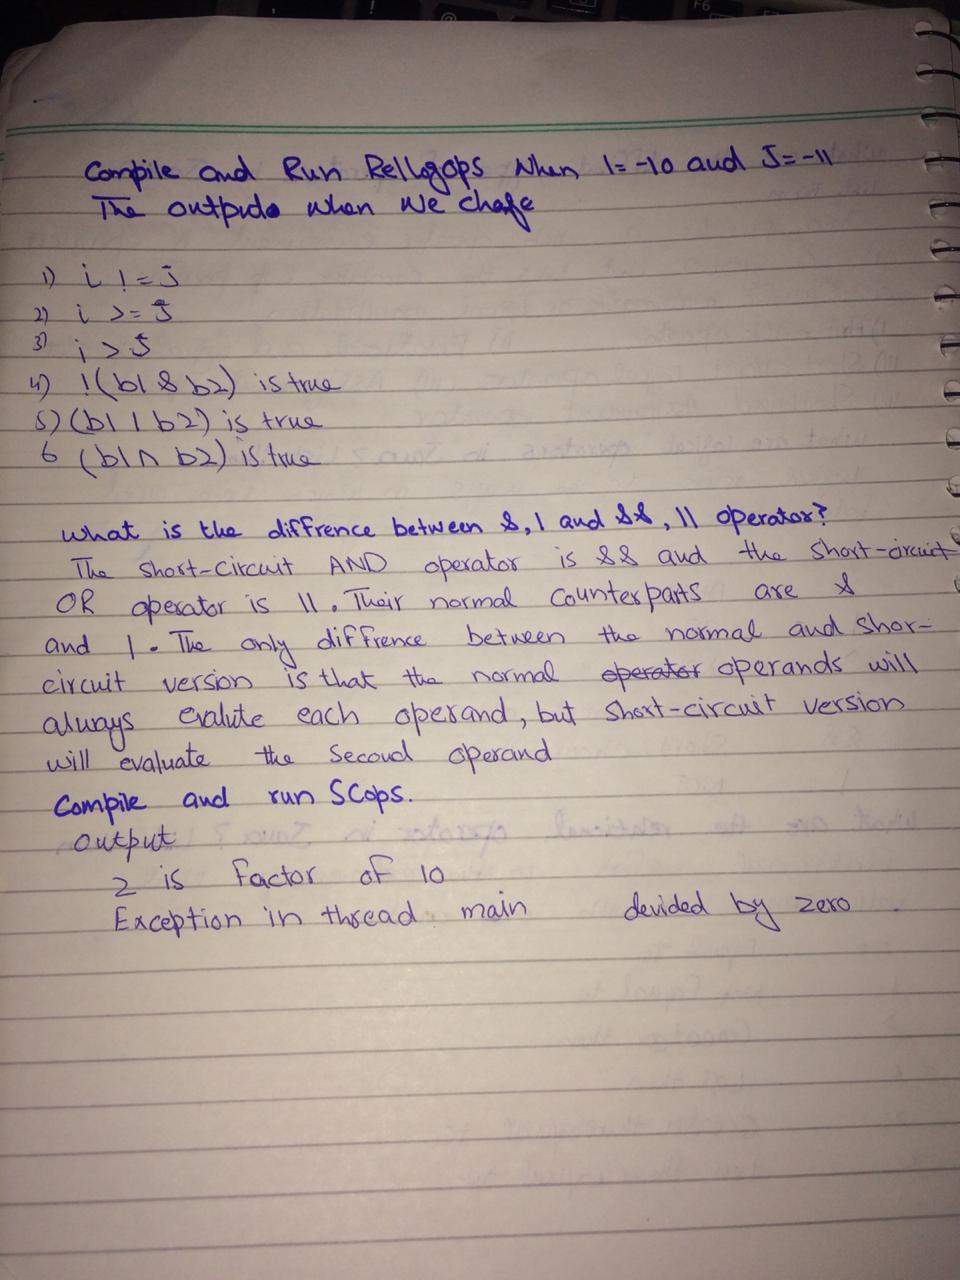 Compile and Run Rellogops When I=-10 and J=-11
The outputs when we chage
1) i != J
2) i >= J
3) i > J
4) !(b1 & b2) is true
5) (b1 | b2) is true
6 (b1 ^ b2) is true
What is the diffrence between &, | and &&, || operator?
The Short-Circuit AND operator is && and the Short-circuit
OR operator is ||. Their normal Counterparts are &
and |. The only diffrence between the normal and Shor-
circuit version is that the normal operator operands will
always evalute each operand, but Short-circuit version
will evaluate the Second operand
Compile and run SCops.
output
2 is factor of 10
Exception in thread main devided by zero